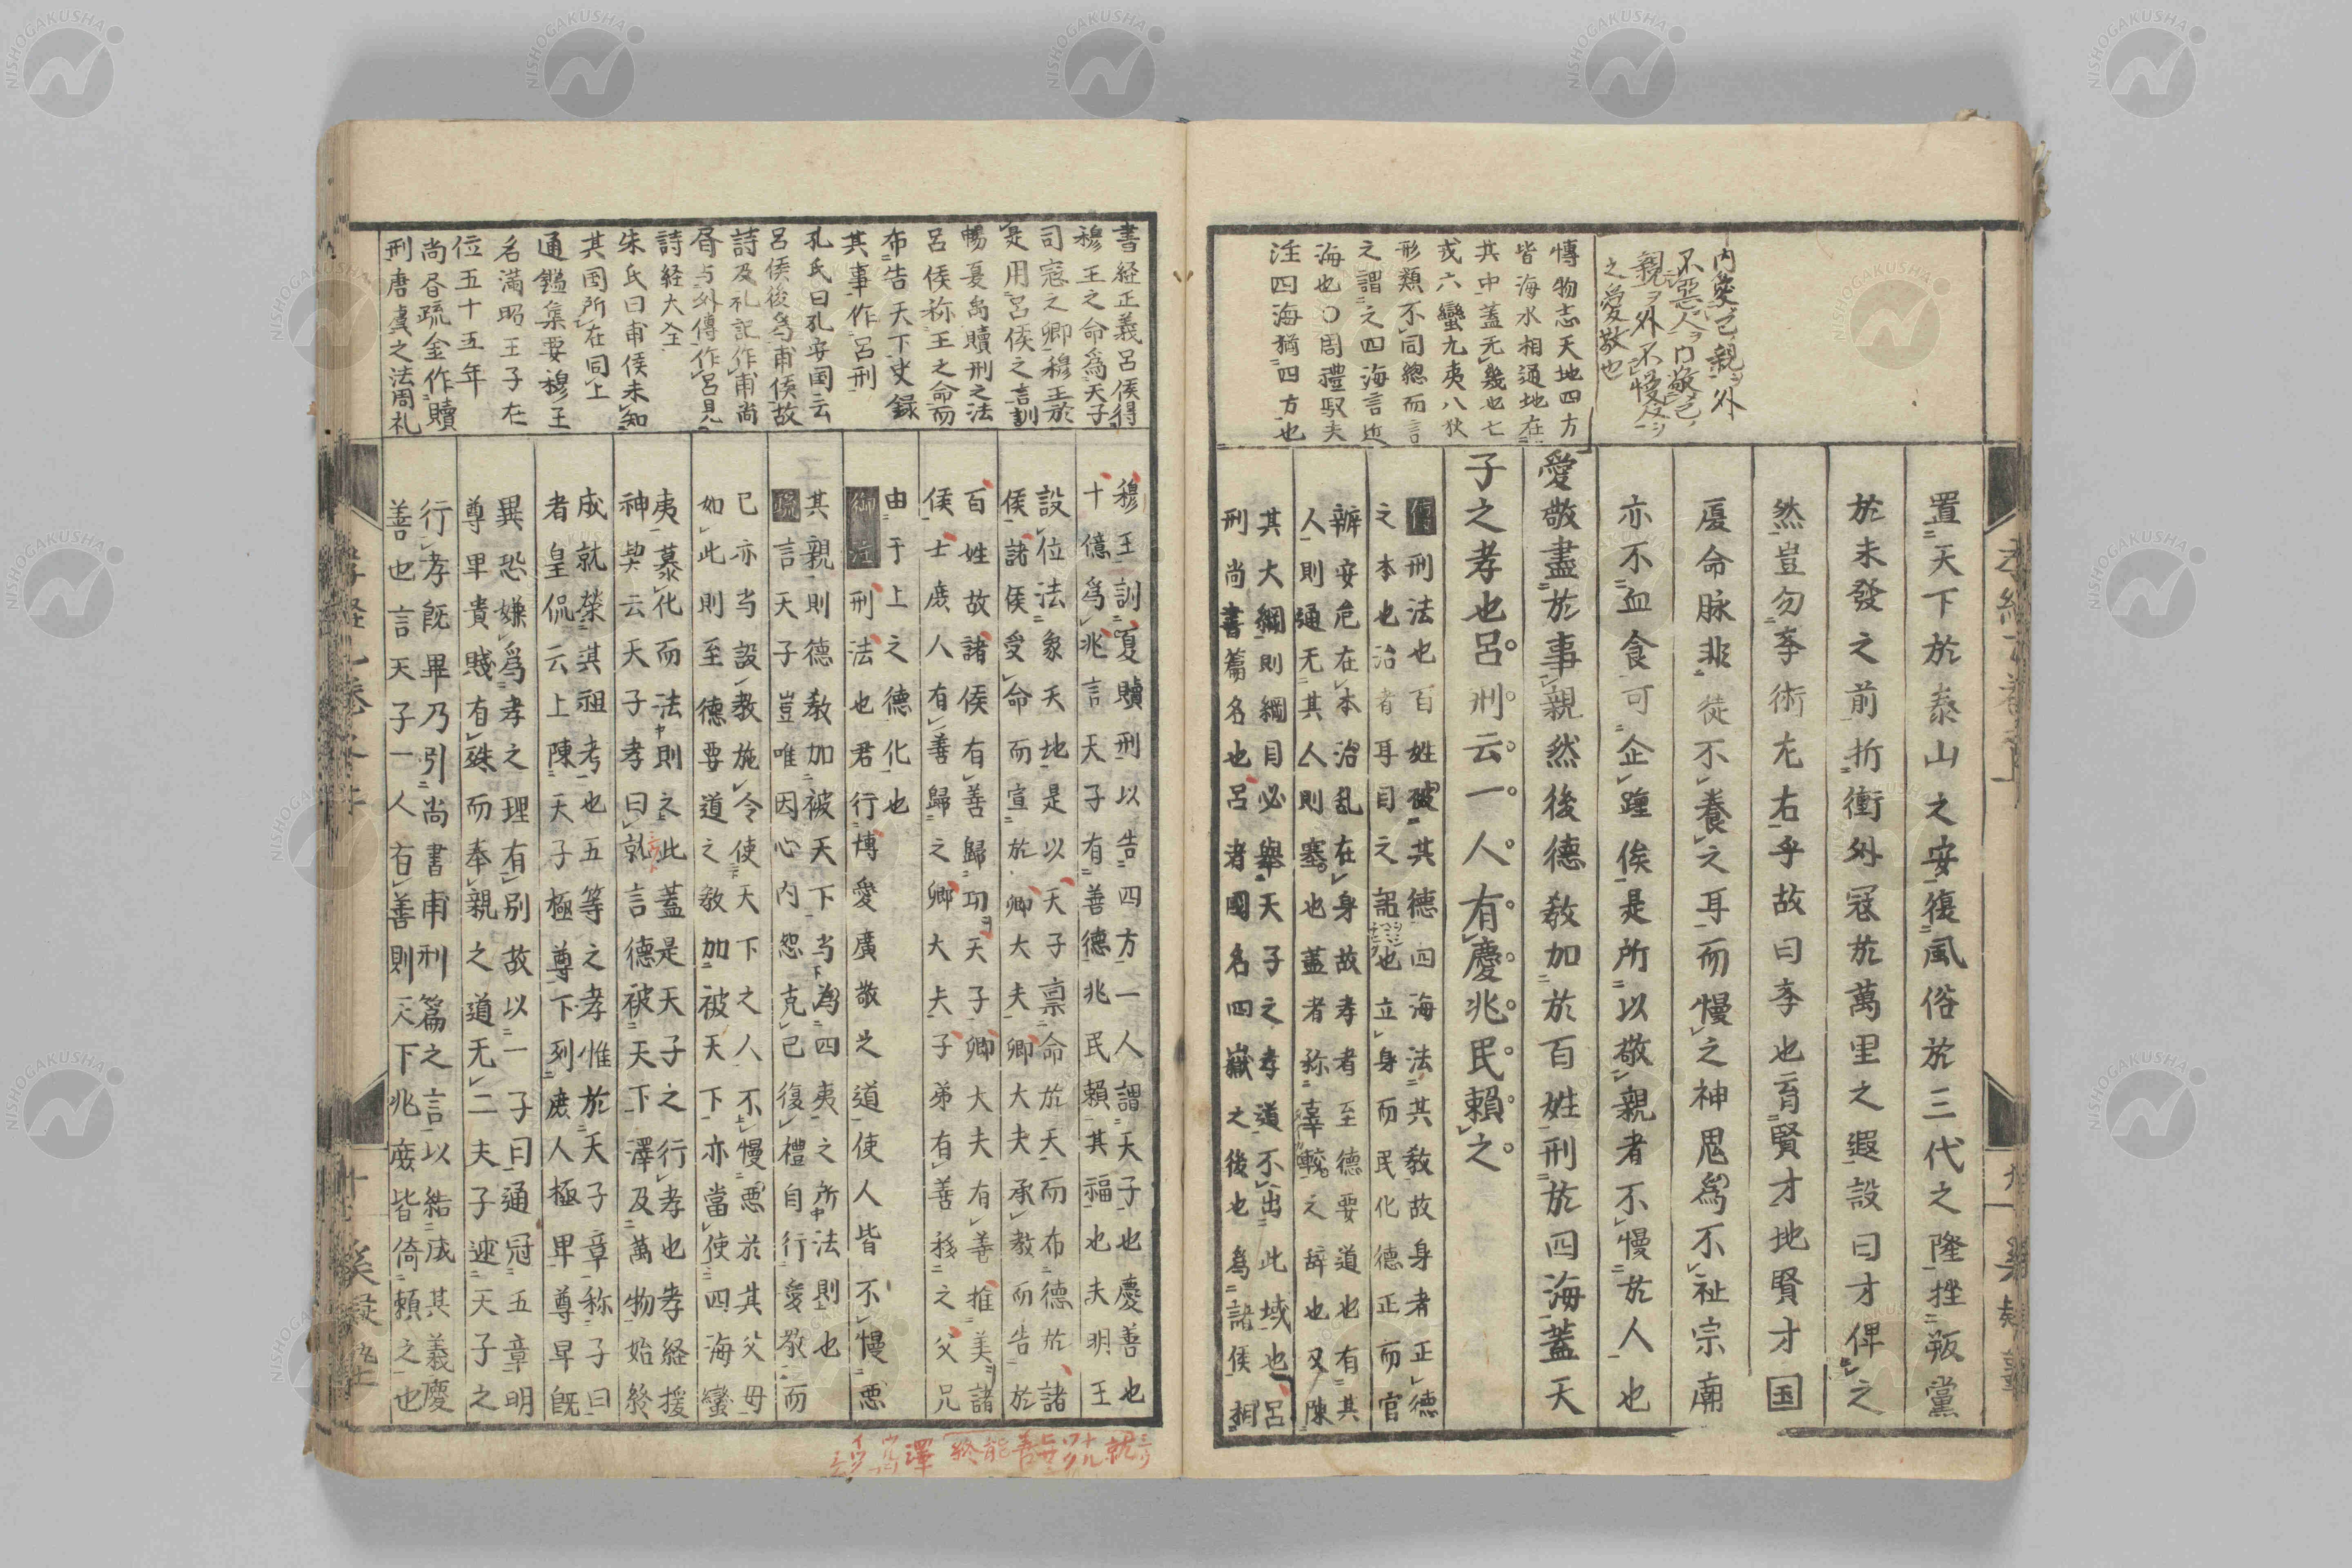 内愛己親ヲ外
不惡人ヲ内敬己
親ヲ外不慢人ヲ
之愛敬也
博物志天地四方
皆海水相通地在
其中蓋无幾也七
戎六蠻九夷八狄
形類不同總而言
之謂之四海言近
海也〇周禮馭夫
注四海猶四方也
置天下於泰山之安復風俗於三代之隆挫叛黨
於未發之前折衝外寇於萬里之遐設曰才俾之
然豈勿孝術尢右乎故曰孝也育賢才地賢才国
厦命脉非徒不養之耳而慢之神思爲不祉宗廟
亦不血食可企踵俟是所以敬親者不慢於人也
愛敬盡於事親然後德敎加於百姓刑於四海蓋天
子之孝也呂刑云一人有慶兆民賴之
傳刑法也百姓被其德四海法其敎故身者正德
之本也治者耳目之詔也立身而民化德正而官
辦安危在本治乱在身故孝者至德要道也有其
人則通无其人則塞也蓋者称辜較之辞也又陳
其大綱則綱目必舉天子之孝道不出此域也呂
刑尚書篇名也呂者國名四嶽之後也爲諸侯相
書経正義呂侯得
穆王之命爲天子
司寇之卿穆王於
是用呂侯之言訓
暢夏禹贖刑之法
呂侯称王之命而
布告天下史録
其事作呂刑
孔氏曰孔安国云
呂侯後爲甫侯故
詩及礼記作甫尚
書与外傳作呂見
詩経大全
朱氏曰甫侯未知
其国所在同上
通鑑集要穆王
名満昭王子在
位五十五年
尚書疏金作贖
刑唐虞之法周礼
穆王訓夏贖刑以告四方一人謂天子也慶善也
十億爲兆言天子有善德兆民賴其福也夫明王
設位法象天地是以天子禀命於天而布德於諸
侯諸侯受命而宣於卿大夫卿大夫承教而告於
百姓故諸侯有善歸功天子卿大夫有善推美諸
侯士庶人有善歸之卿大夫子弟有善移之父兄
由于上之德化也
御注刑法也君行博愛廣敬之道使人皆不慢惡
其親則德敎加被天下当為四夷之所法則也
疏言天子豈唯因心内恕克己復禮自行愛敬而
已亦当設教施令使天下之人不慢惡於其父母
如此則至德要道之敎加被天下亦當使四海蠻
夷慕化而法則之此蓋是天子之行孝也孝経援
神契云天子孝曰就言德被天下澤及萬物始終
成就榮其祖考也五等之孝惟於天子章称子曰
者皇侃云上陳天子極尊下列庶人極卑尊卑既
異恐嫌爲孝之理有別故以一子曰通冠五章明
尊卑貴賤有殊而奉親之道无二夫子述天子之
行孝既畢乃引尚書甫刑篇之言以結成其義慶
善也言天子一人有善則天下兆庶皆倚賴之也
NISHOGAKUSHA